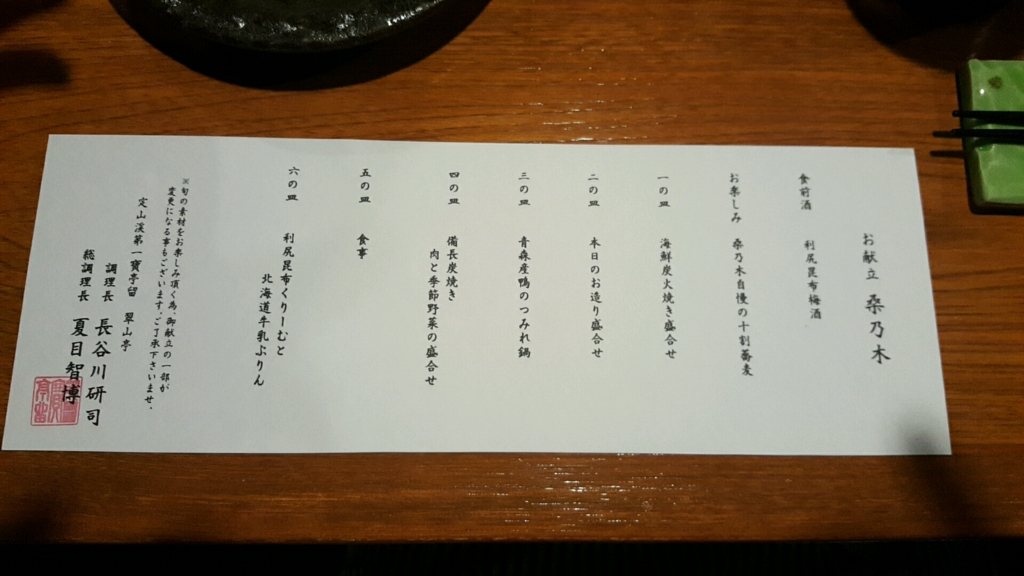 お献立 桑乃木
食前酒 利尻昆布梅酒
お楽しみ 桑乃木自慢の十割蕎麦
一の皿 海鮮炭火焼き盛合せ
二の皿 本日のお造り盛合せ
三の皿 青森産鴨のつみれ鍋
四の皿 備長炭焼き
肉と季節野菜の盛合せ
五の皿 食事
六の皿 利尻昆布くりーむと
北海道牛乳ぷりん
※旬の素材をお楽しみ頂く為、御献立の一部が
変更になる事もございます。ご了承下さいませ。
定山渓第一寶亭留 翠山亭
調理長 長谷川研司
総調理長 夏目智博